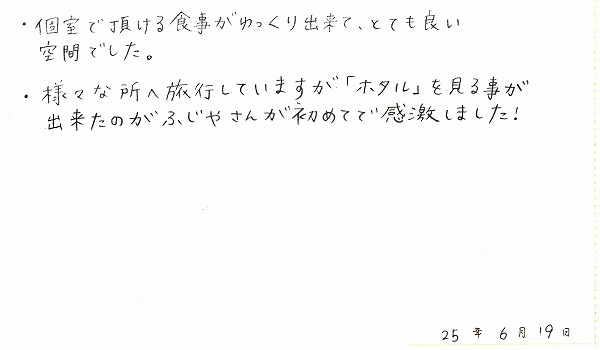 ・個室で頂ける食事がゆっくり出来て、とても良い
空間でした。
・様々な所へ旅行していますが「ホタル」を見る事が
出来たのがふじやさんが初めてで感激しました!
25 年 6 月 19 日